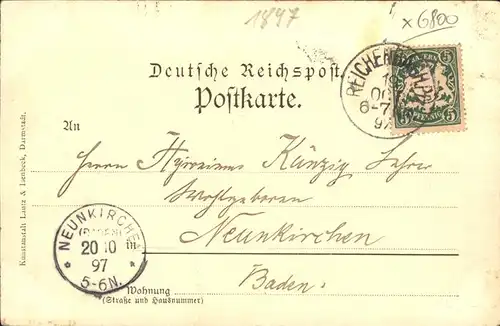 1897
x 6800
Deutsche Reichspost
Postkarte.
REICHENB
OC
6-7
97
BAYERN
5 5
PFENNIG
An
Herrn Künzig Lehrer
Wohlgeboren
in Neunkirchen
Baden.
NEUNKIRCHEN
(BADEN)
20 10
97
5-6N.
Wohnung
(Straße und Hausnummer)
Kunstanstalt Lautz & Isenbeck, Darmstadt.